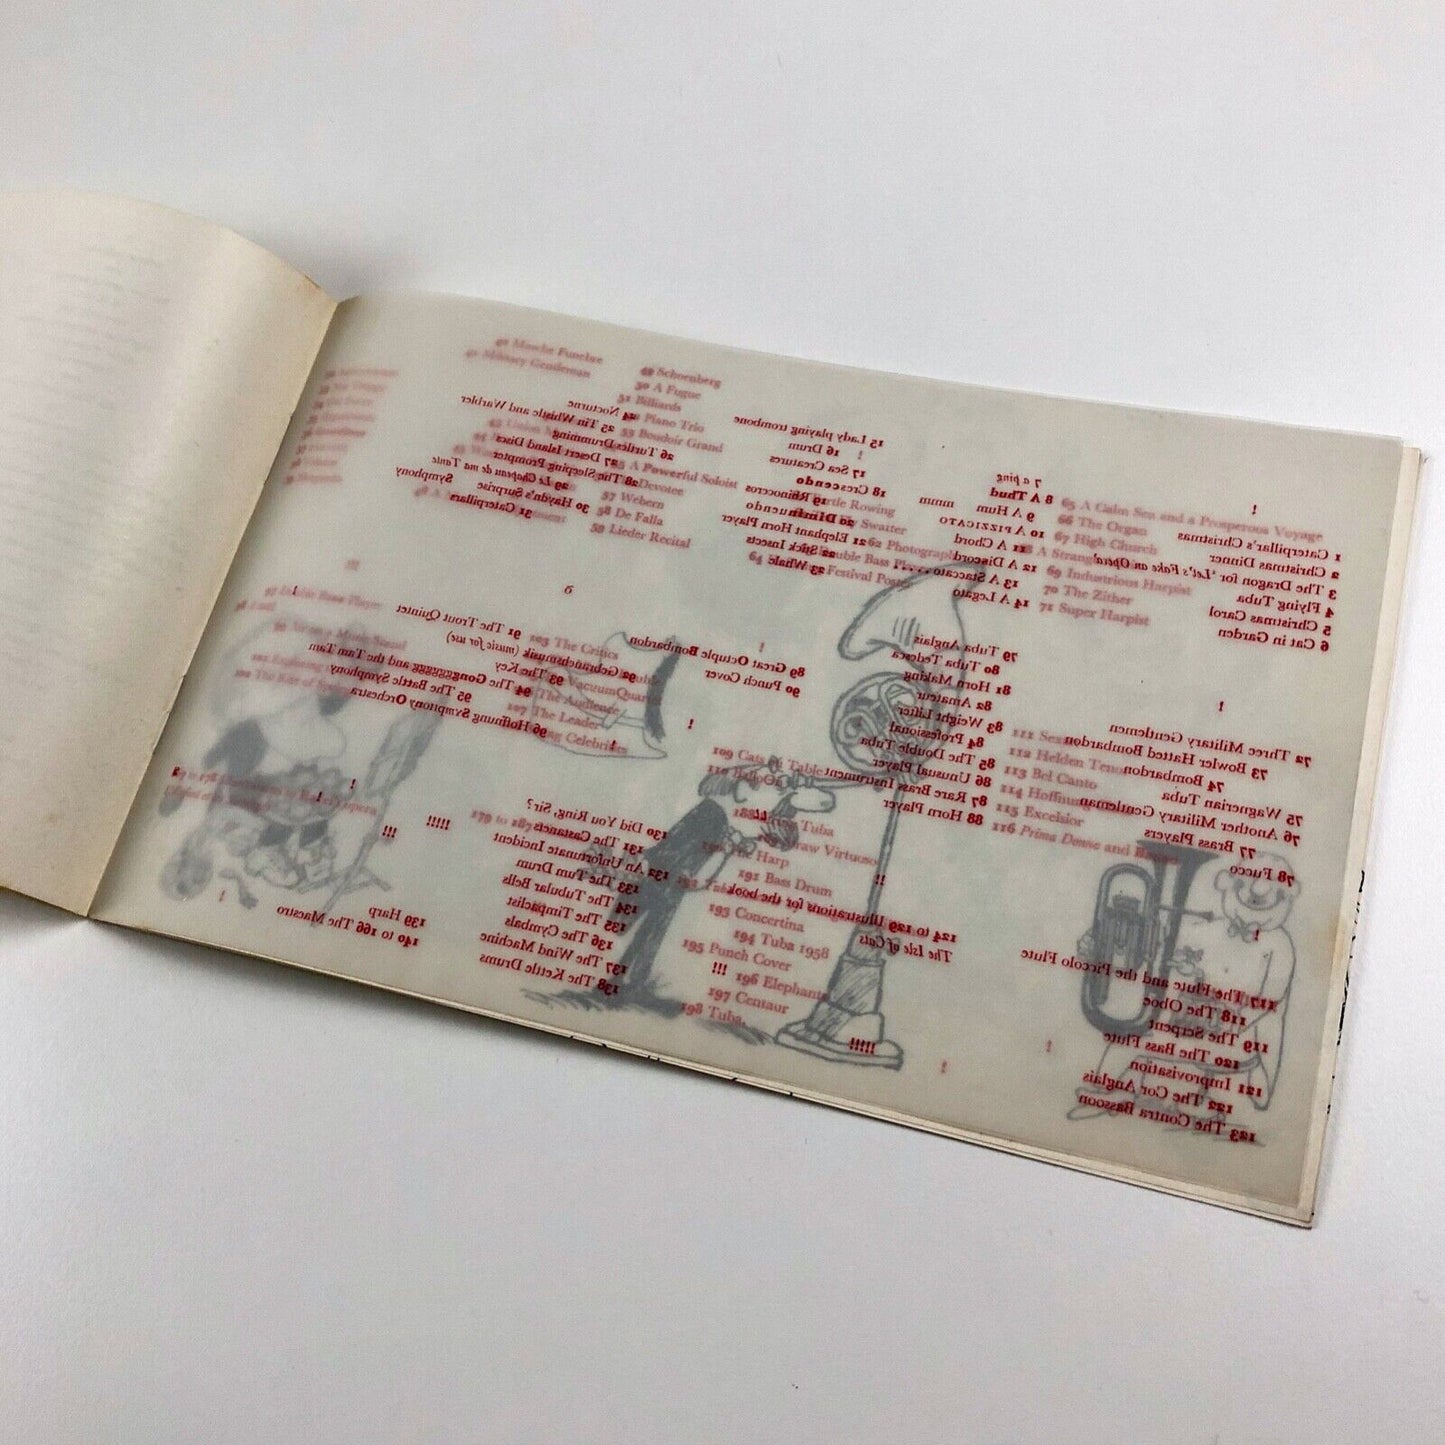 1 Caterpillar's Christmas
2 Christmas Dinner
3 The Dragon for 'Let's Fake an Opera'
4 Flying Tuba
5 Christmas Carol
6 Cat in Garden
7 a ping
8 A Thud
9 A Hum mmm
10 A PIZZICATO
11 A Chord
12 A Discord
13 A Staccato . . . . .
14 A Legato
15 Lady playing trombone
16 Drum !
17 Sea Creatures
18 Crescendo
19 Rhinoceros
20 Diminuendo
21 Elephant Horn Player
22 Stick Insects
23 Whale
24 Nocturne
25 Tin Whistle and Warbler
26 Turtles Drumming
27 Desert Island Discs
28 The Sleeping Prompter
29 Le Chapeau de ma Tante
30 Haydn's Surprise Symphony
31 Caterpillars
40 Marche Funebre
41 Military Gentleman
49 Schoenberg
50 A Fugue
51 Billiards
Piano Trio
53 Boudoir Grand
A Powerful Soloist
Devotee
57 Webern
58 De Falla
59 Lieder Recital
Turtle Rowing
Swatter
62 Photograph
Double Bass
64 Festival Poster
65 A Calm Sea and a Prosperous Voyage
66 The Organ
67 High Church
A Strange
69 Industrious Harpist
70 The Zither
71 Super Harpist
!
72 Three Military Gentlemen
73 Bowler Hatted Bombardon
74 Bombardon
75 Wagnerian Tuba
76 Another Military Gentleman
77 Brass Players
78 Fuoco
79 Tuba Anglais
80 Tuba Tedesca
81 Horn Making
82 Amateur
83 Weight Lifter
84 Professional
85 The Double Tuba
86 Unusual Player
87 Rare Brass Instrument
88 Horn Player
89 Great Octuple Bombardon
90 Punch Cover
91 The Trout Quintet
92 Gebrauchsmusik (music for use)
93 The Key
94 The Gonggggggggg and the Tam Tam
95 The Battle Symphony
96 Hoffnung Symphony Orchestra
97 Double Bass Player
99 Verso a Music Stand
103 The Critics
Vacuum Quartet
The Audience
107 The Leader
109 Cats on Table
111
112 Helden Tenor
113 Bel Canto
114 Hoffnung
115 Excelsior
116 Prima Donne and
117 The Flute and the Piccolo Flute
118 The Oboe
119 The Serpent
120 The Bass Flute
121 Improvisation
122 The Cor Anglais
123 The Contra Bassoon
124 to 129 Illustrations for the book
The Isle of Cats
130 Did You Ring, Sir?
131 The Castanets
132 An Unfortunate Incident
133 The Tum Drum
134 The Tubular Bells
135 The Timpaclist
136 The Cymbals
137 The Wind Machine
138 The Kettle Drums
139 Harp
140 to 166 The Maestro
179 to 187
Tuba
Straw Virtuoso
The Harp
191 Bass Drum
193 Concertina
194 Tuba 1958
195 Punch Cover
196 Elephants
197 Centaur
198 Tuba.
!!!
!!!!!